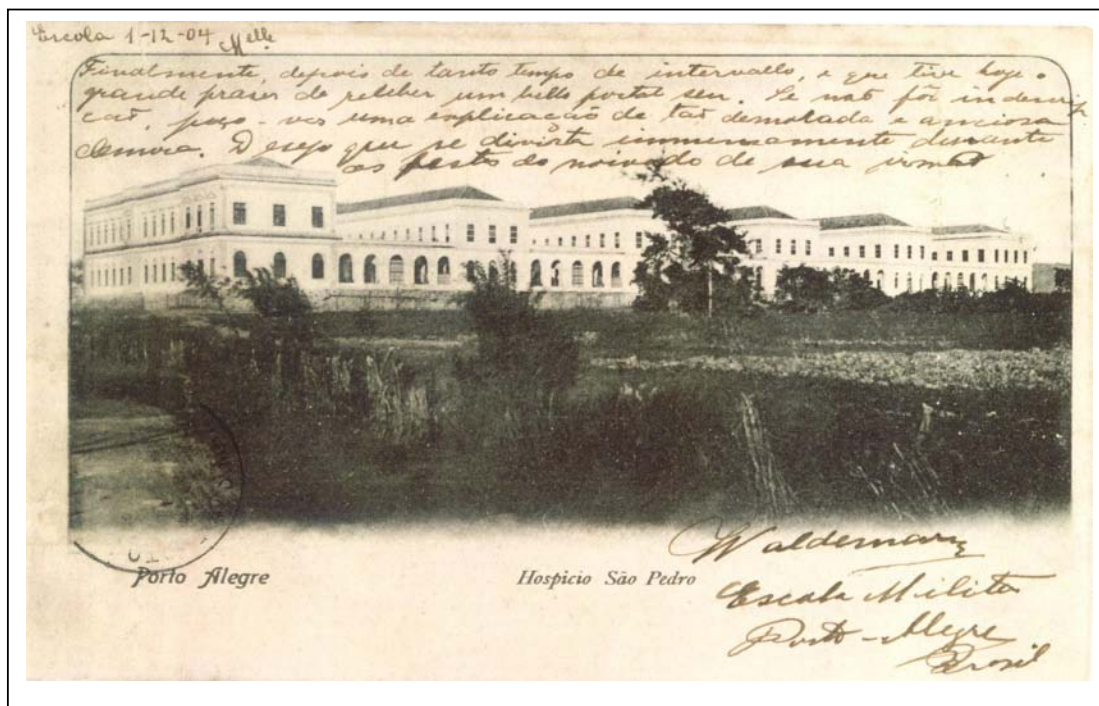 Escola 1-12-04
Melle
Finalmente, depois de tanto tempo de intervallo, e que tive hoje o
grande praser de receber um bello postal seu. Se não fôr indescrip
cão, peço-vos uma explicação de tão demorada e anciosa
demora. Desejo que se divirta immensamente durante
as festas do noivado de sua irmã
Porto Alegre
Hospicio São Pedro
Waldemar
Escola Militar
Porto-Alegre
Brasil